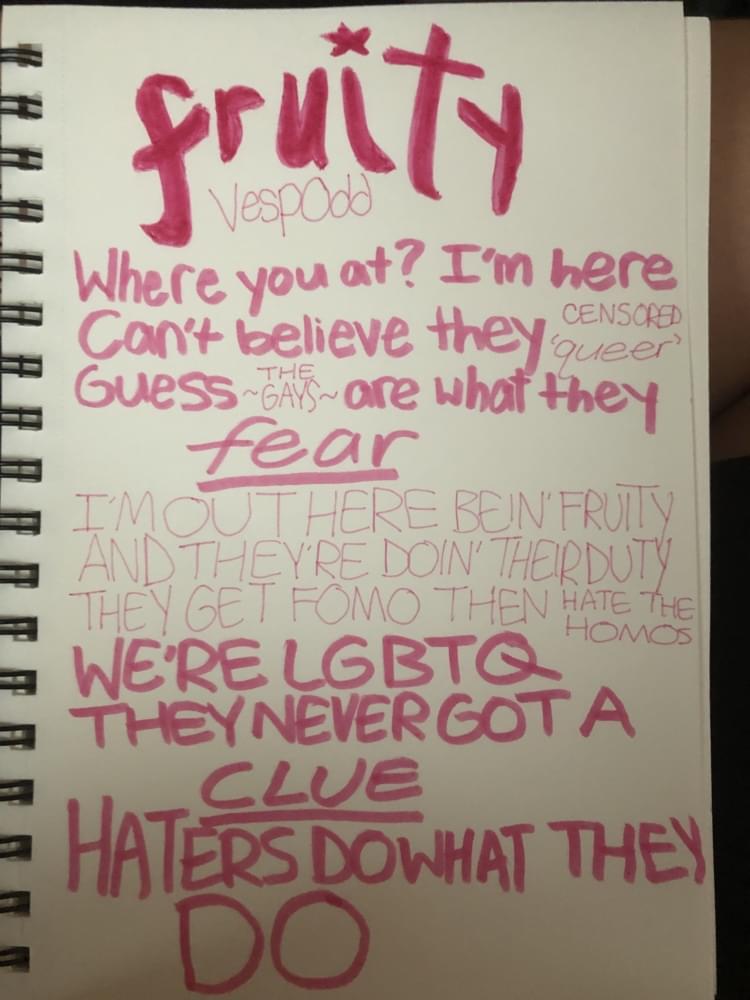 fruity
VespOdd
Where you at? I'm here
Can't believe they CENSORED 'queer'
Guess ~THE GAYS~ are what they
fear
I'M OUT HERE BEIN' FRUITY
AND THEY'RE DOIN' THEIR DUTY
THEY GET FOMO THEN HATE THE HOMOS
WE'RE LGBTQ
THEY NEVER GOT A
CLUE
HATERS DO WHAT THEY
DO